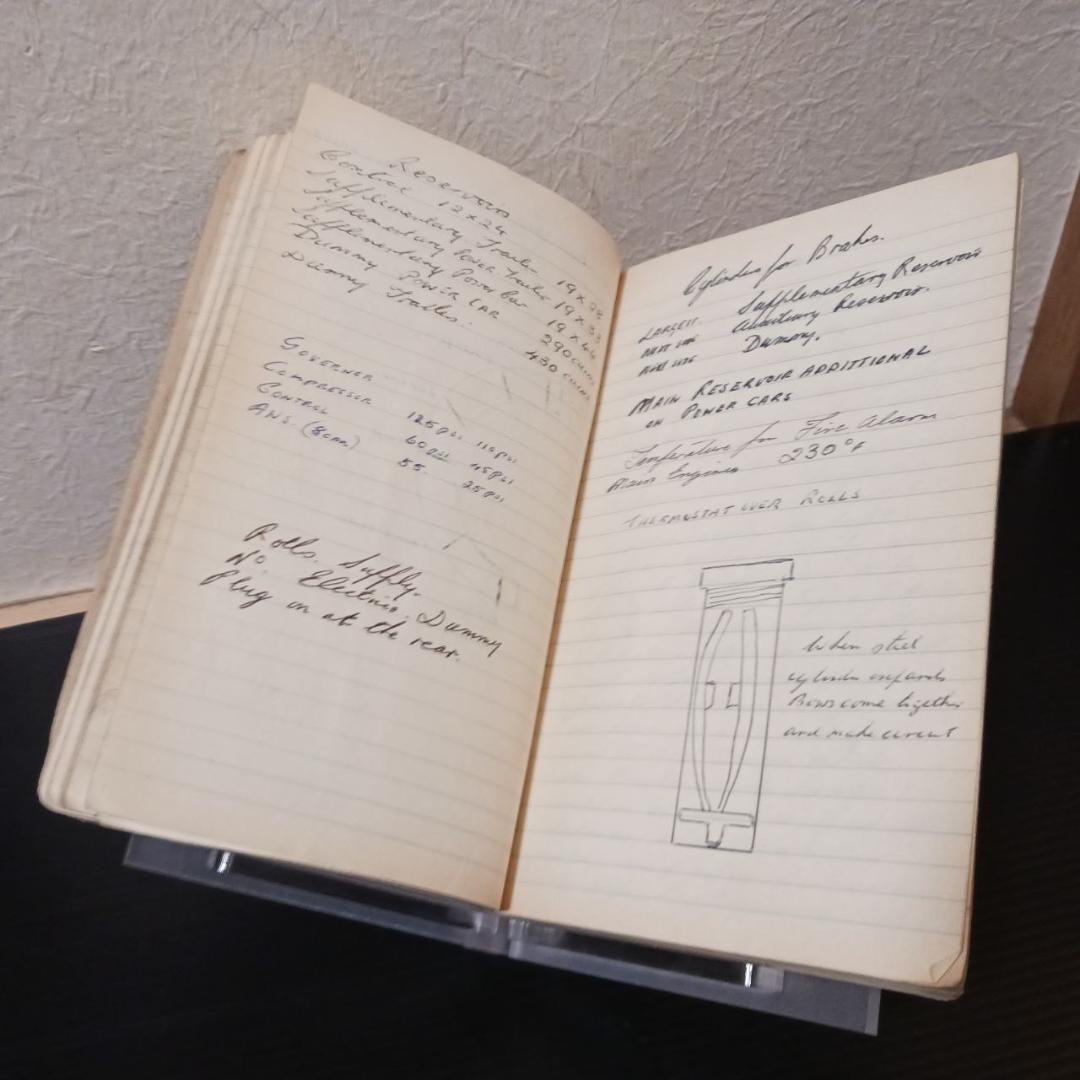 Reservoirs
Control 12 x 24
Supplementary Trailer 19 x 28
Supplementary Power Trailer 19 x 33
Supplementary Power Car 19 x 44
Dummy Power Car 290 cu ins
Dummy Trailer. 430 cu ins
Governer
Compressor 125 psi 110 psi
Control 60 psi 45 psi
A.N.S. 55 25 psi
Rolls. Supply.
No. Electric. Dummy
Plug on at the rear.
Cylinders for Brakes.
Largest. Supplementary Reservoir
Next size Auxiliary Reservoir.
Next size Dummy.
Main Reservoir additional
on Power cars
Temperature for Fire Alarm
Main Engines 230°F
Thermostat over Rolls
When steel
cylinder expands
Bows come together
and make circuit